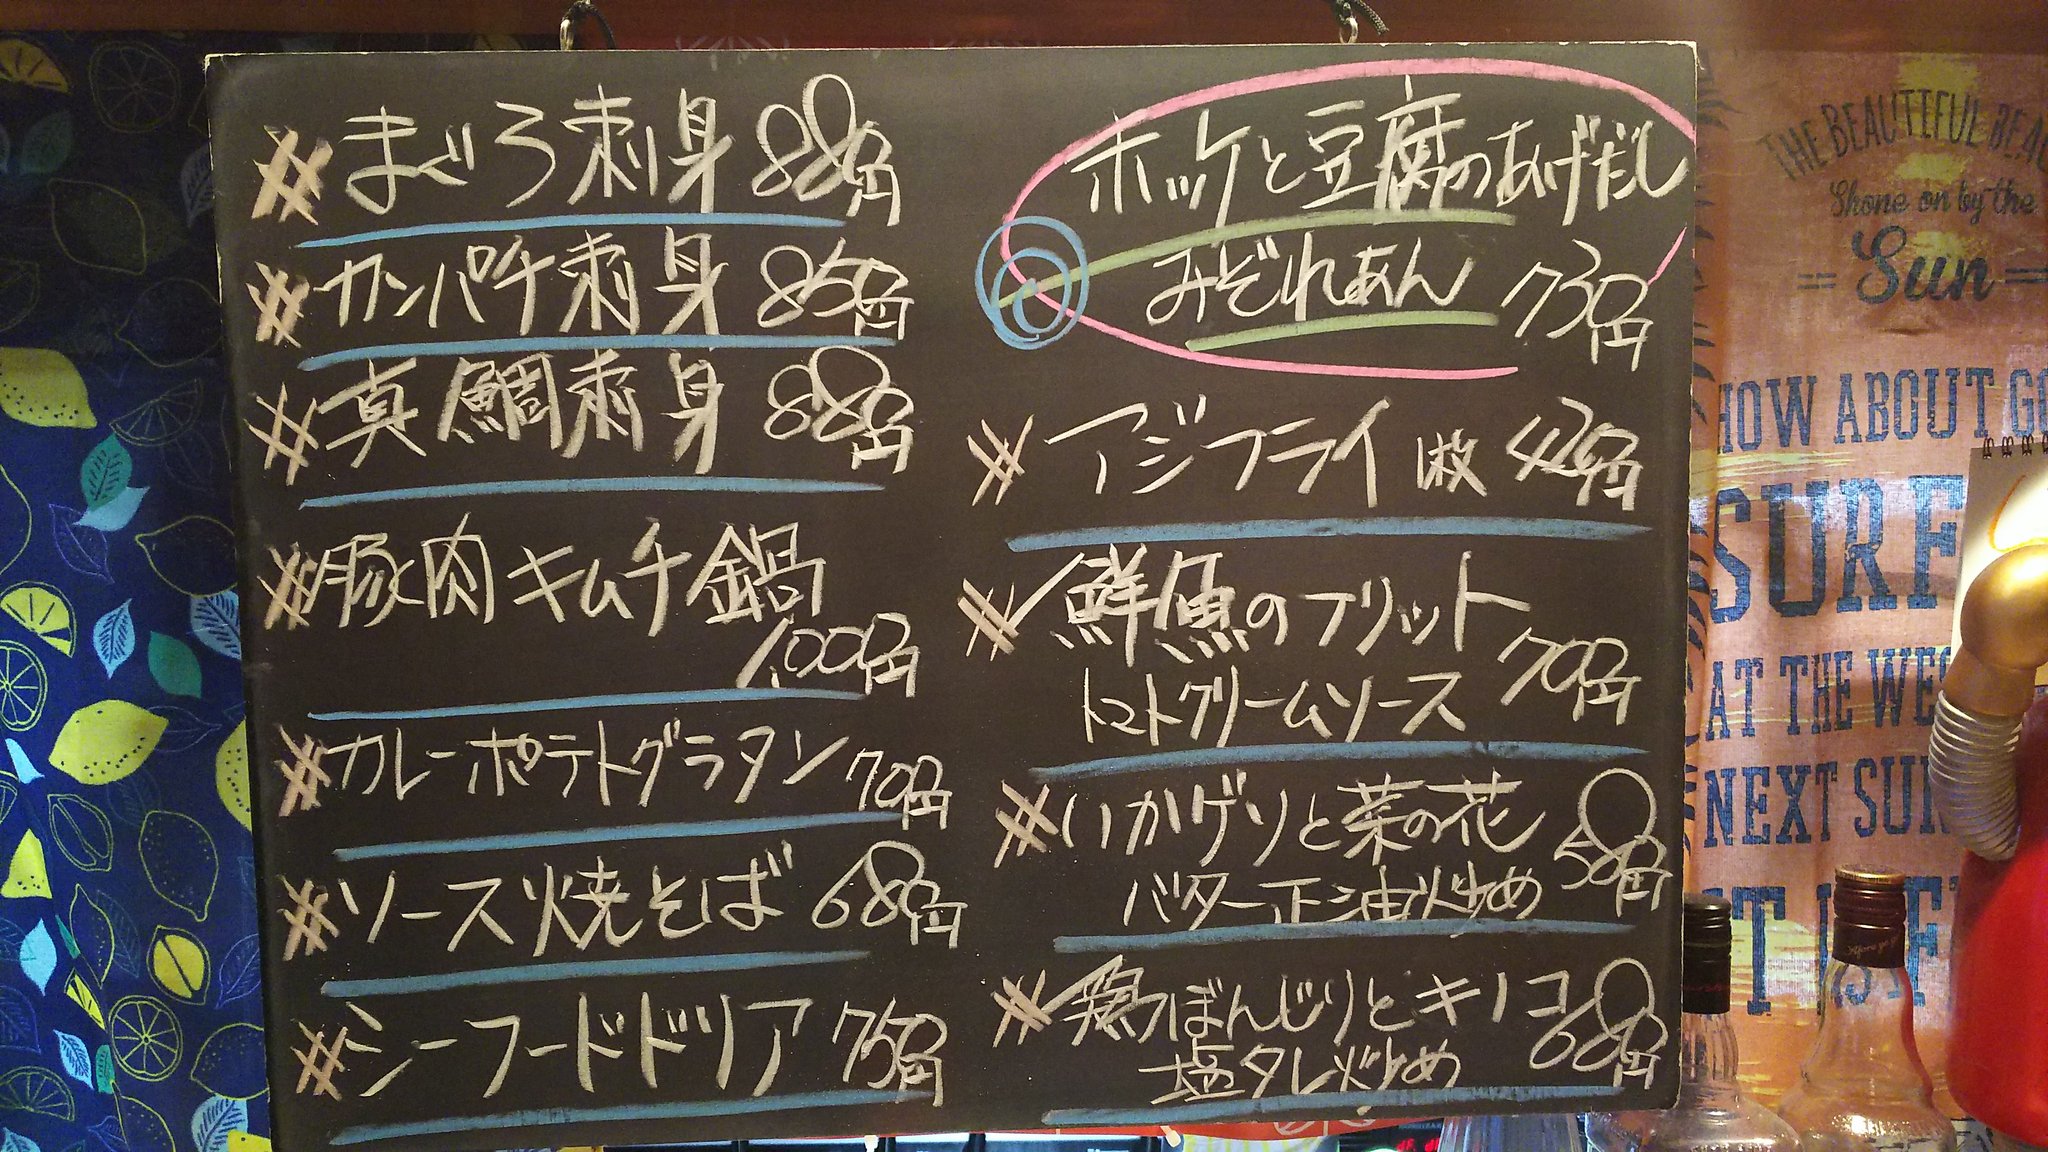 まぐろ刺身 880円
カンパチ刺身 850円
真鯛刺身 880円
豚肉キムチ鍋
1,000円
カレーポテトグラタン 700円
ソース焼そば 680円
シーフードドリア 750円
ホッケと豆腐のあげだし
みぞれあん 730円
アジフライ 1枚 420円
鮮魚のフリット
トマトクリームソース 700円
いかゲソと菜の花
バター正油炒め 580円
鶏ぼんじりとキノコ
塩タレ炒め 680円
THE BEAUTIFUL
Shone on by the
Sun
HOW ABOUT
SURF
AT THE
NEXT